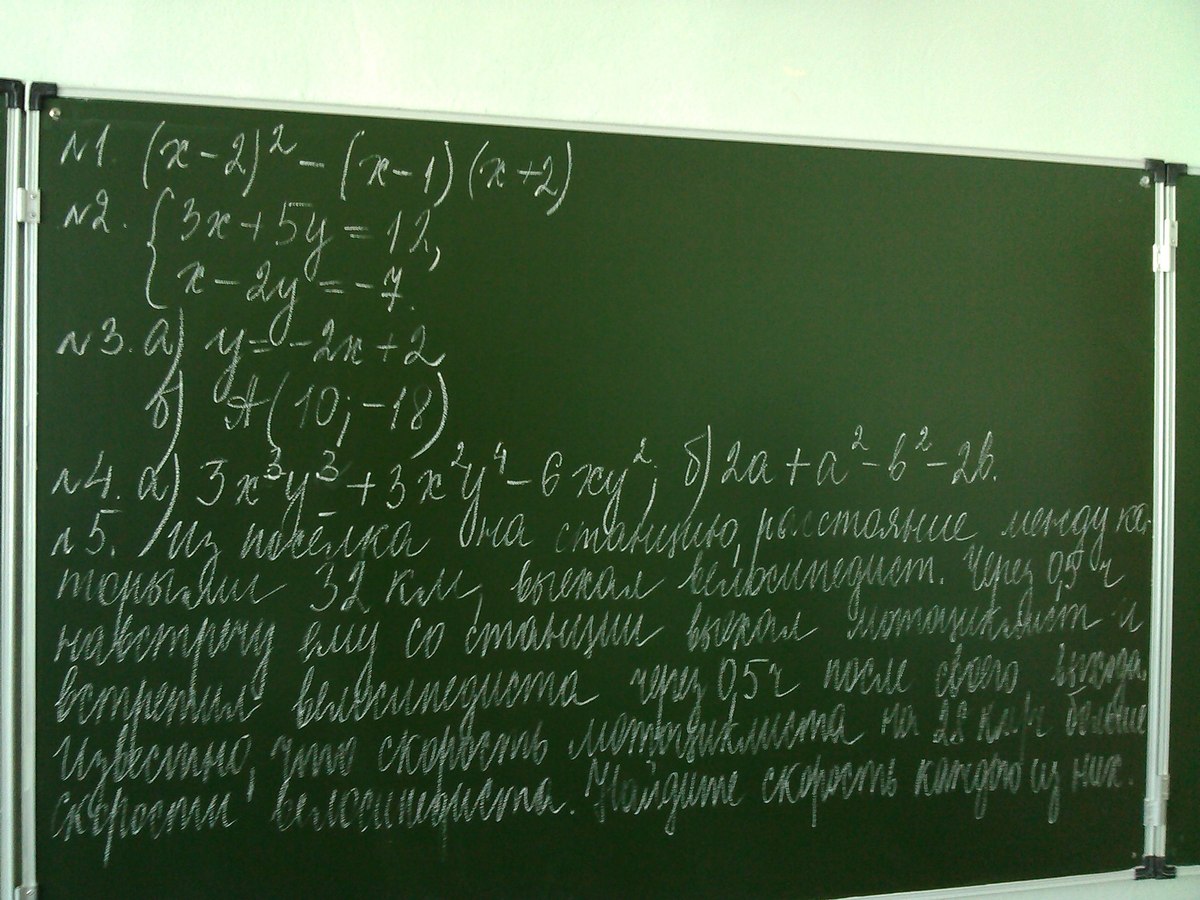 №1. (x-2)² - (x-1)(x+2)
№2. {3x+5y=12,
x-2y=-7.
№3. а) y=-2x+2
в) A(10;-18)
№4. а) 3x³y³+3x²y⁴-6xy²; б) 2a+a²-b²-2b.
№5. Из посёлка на станцию, расстояние между ко-
торыми 32 км, выехал велосипедист. Через 0,5 ч
навстречу ему со станции выехал мотоциклист и
встретил велосипедиста через 0,5 ч после своего выезда.
Известно, что скорость мотоциклиста на 28 км/ч больше
скорости велосипедиста. Найдите скорость каждого из них.